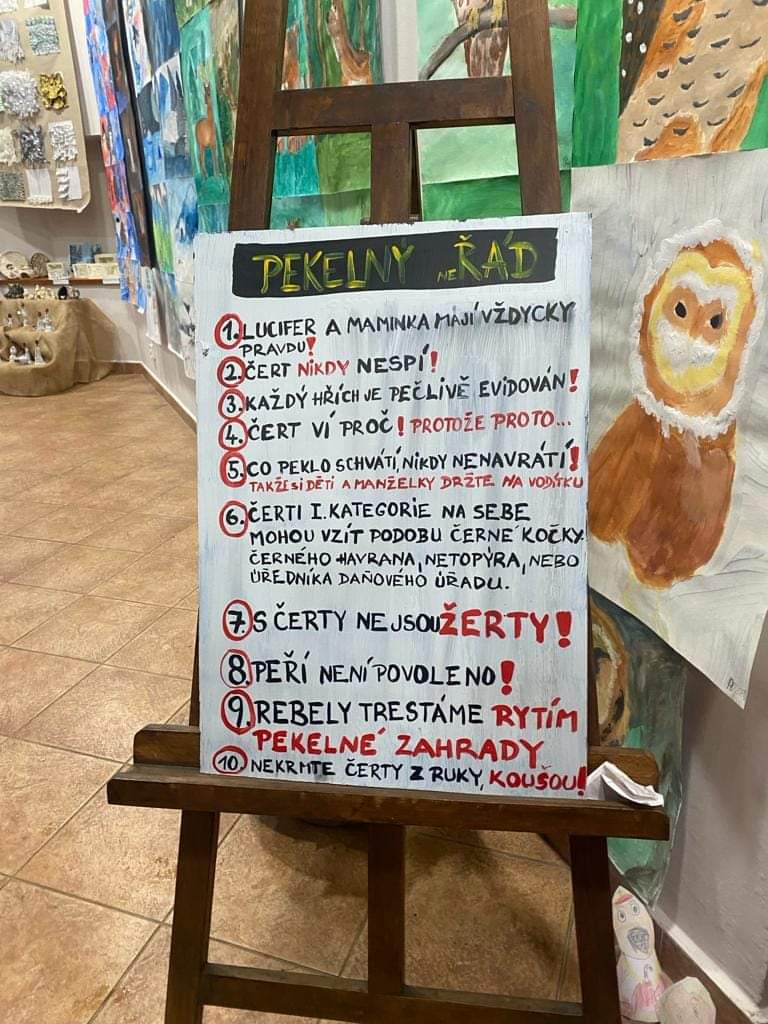 PEKELNY neŘÁD
1. LUCIFER A MAMINKA MAJÍ VŽDYCKY
PRAVDU!
2. ČERT NIKDY NESPÍ!
3. KAŽDÝ HŘÍCH JE PEČLIVĚ EVIDOVÁN!
4. ČERT VÍ PROČ! PROTOŽE PROTO...
5. CO PEKLO SCHVÁTÍ, NIKDY NENAVRÁTÍ!
TAKŽE SI DĚTI A MANŽELKY DRŽTE NA VODÍTKU
6. ČERTI I. KATEGORIE NA SEBE
MOHOU VZÍT PODOBU ČERNÉ KOČKY
ČERNÉHO HAVRANA, NETOPÝRA, NEBO
ÚŘEDNÍKA DAŇOVÉHO ÚŘADU.
7. S ČERTY NEJSOU ŽERTY!
8. PEŘÍ NENÍ POVOLENO!
9. REBELY TRESTÁME RYTÍM
PEKELNÉ ZAHRADY
10. NEKRMTE ČERTY Z RUKY, KOUŠOU!